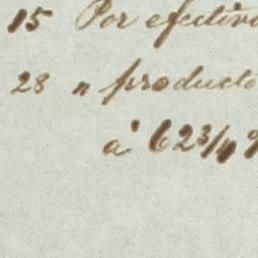 15 Por efectivo
28 " producto
á 62 3/4